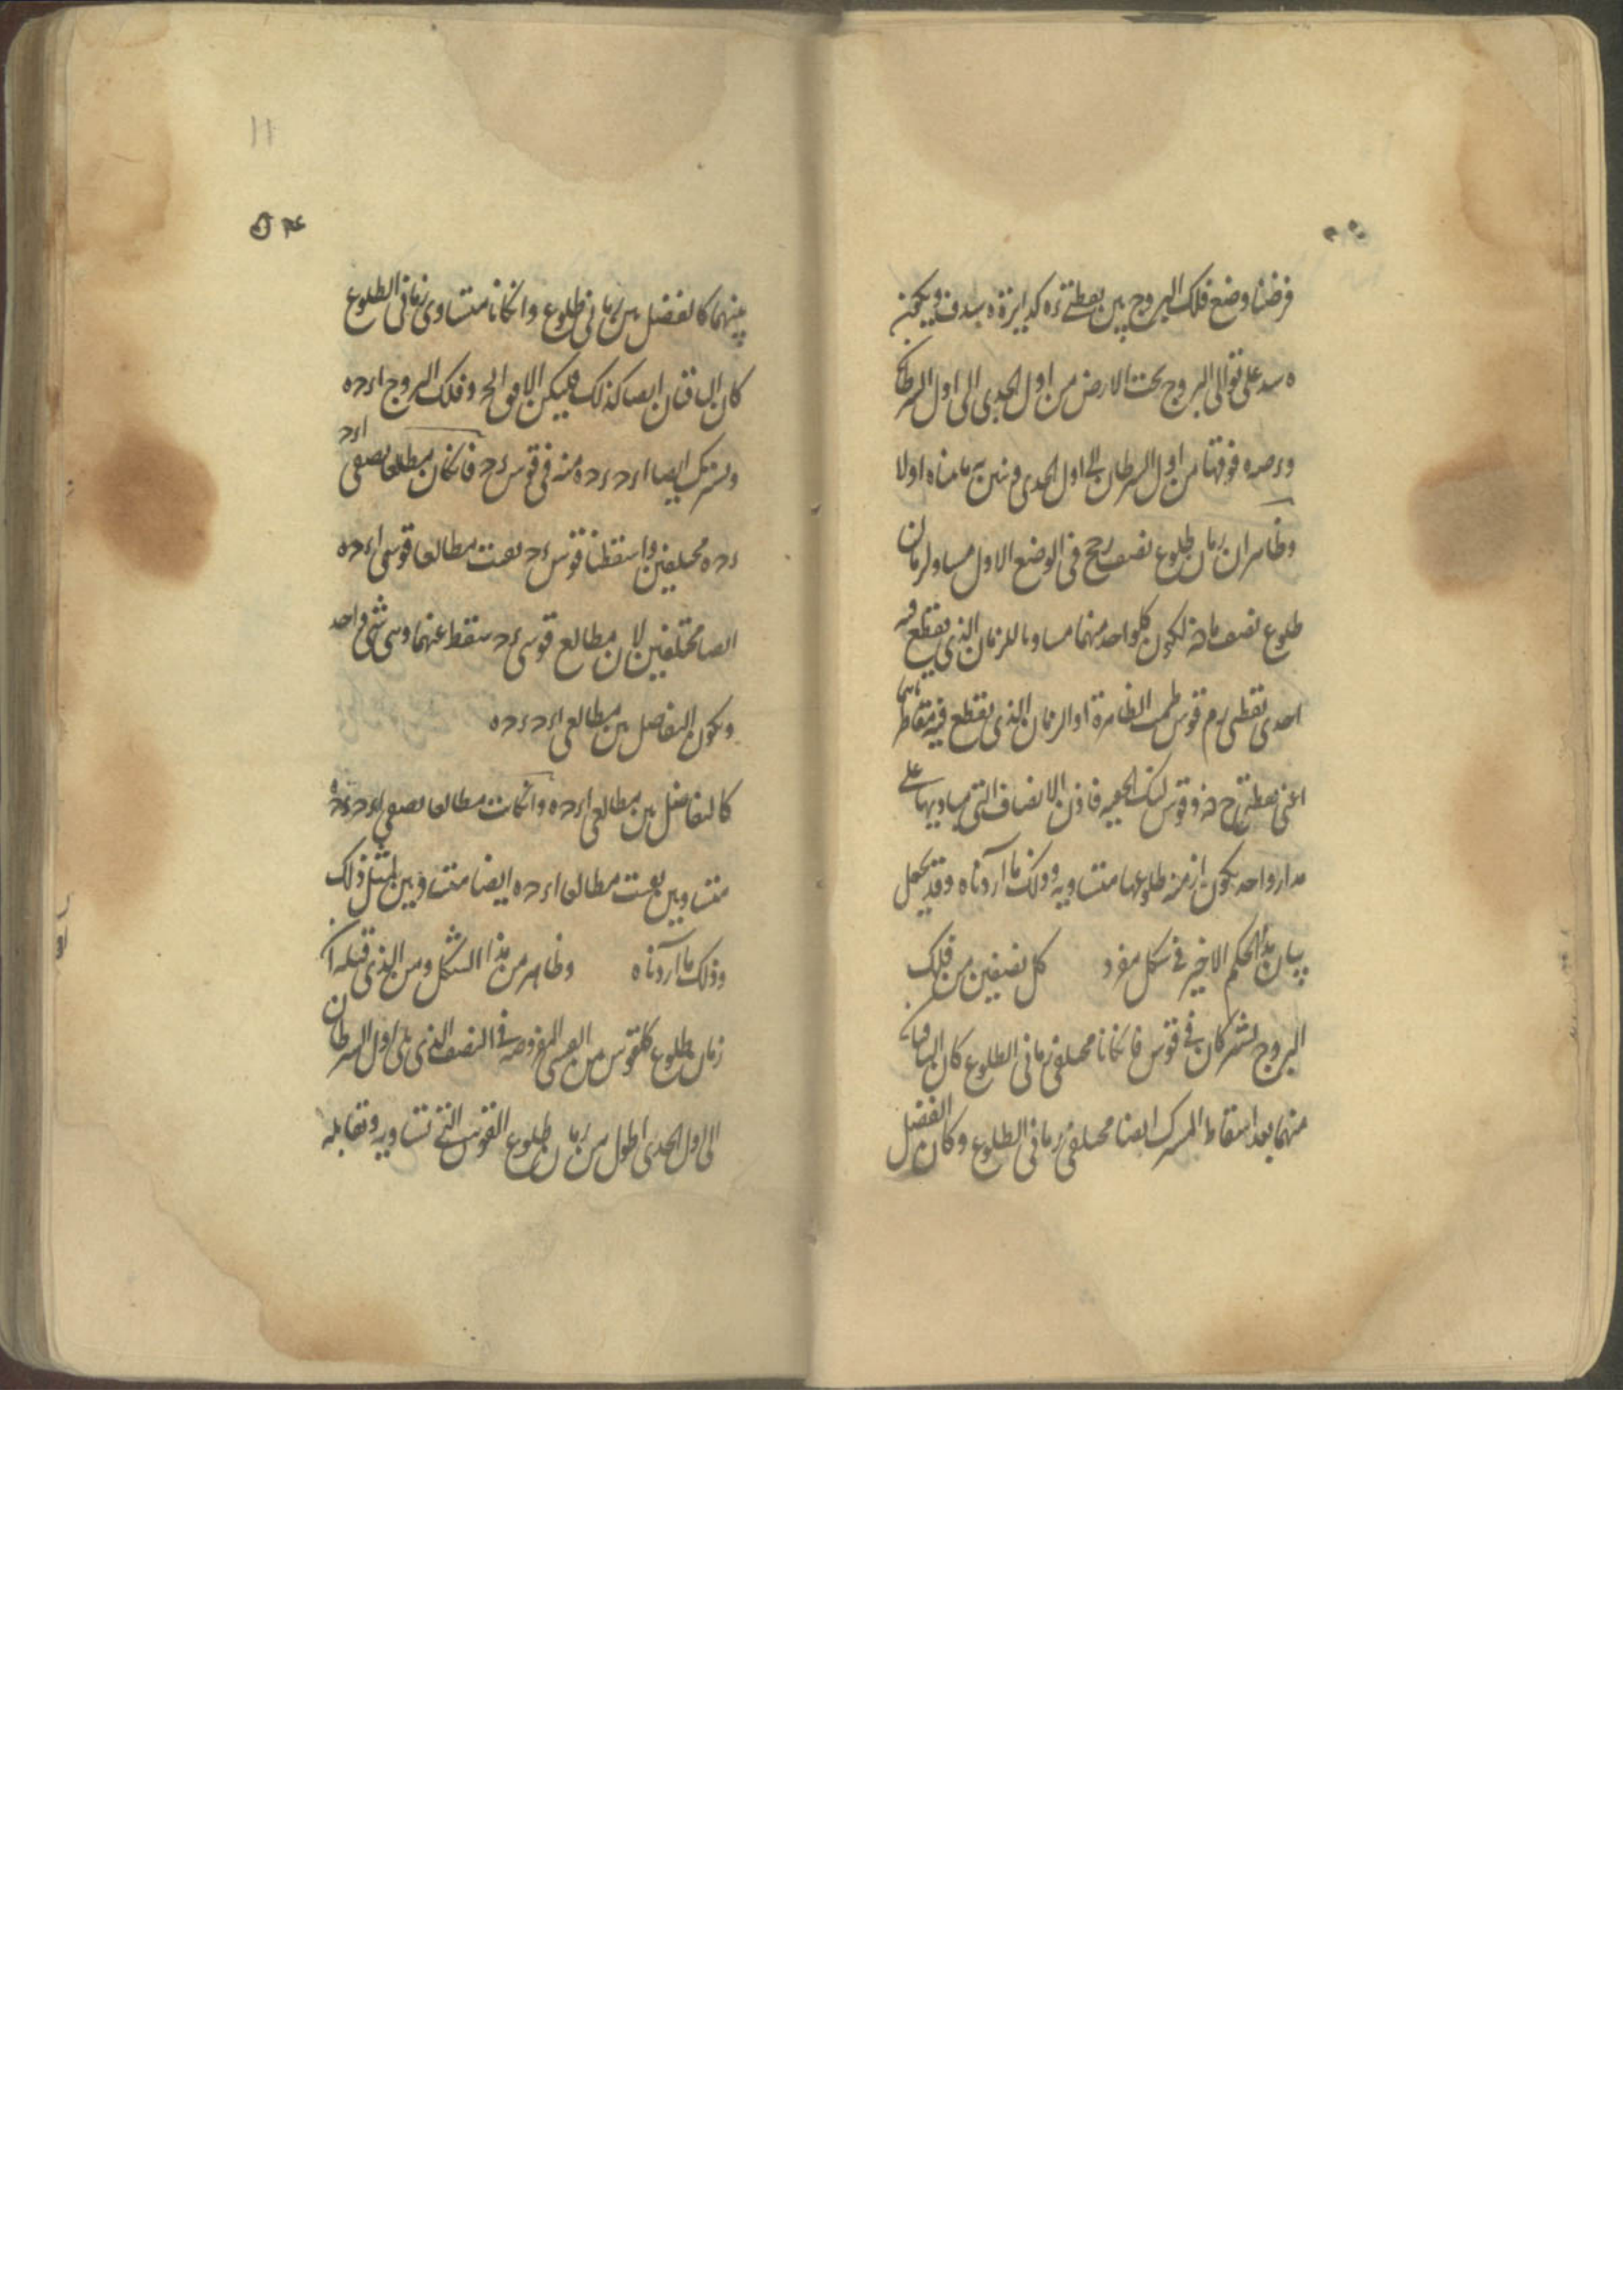 فرضنا وضع فلك البروج بين نقطتي ء ه كدايرة ه سد ف ويكون
ه سد على توالى البروج تحت الارض من اول الجدى الى اول السرطان
فوقها من اول السرطان الى اول الجدى ونبين به ما بيناه اولا
وظاهر ان زمان طلوع نصف رح فى الوضع الاول مساو لزمان
طلوع نصف لكون كلواحد منهما مساويا للزمان الذى يقطع فيه
احدى نقطتى قوس الظاهرة او الزمان الذى يقطع فيه مقاطرتها
اعنى نقطتى وقوس الخفية فاذن الانصاف التى مباديها على
مدار واحد يكون ازمنة طلوعها متساوية وذلك ما اردناه وقد يحمل
بيان هذا الحكم الاخير فى شكل مفرد كل نصفين من فلك
البروج يشتركان فى قوس فانكانا مختلفى زمانى الطلوع كان الباقيان
منهما بعد اسقاط المشترك ايضا مختلفى زمانى الطلوع وكان الفضل
بينهما كالفضل بين زمانى طلوع وانكانا متساوى زمانى الطلوع
كان الباقيان ايضا كذلك فليكن الافق الح وفلك البروج اء ح ه
ويشترك ايضا اء ح ء ح ه منه فى قوس ء ح فانكان مطلعا نصفى اء ح
ء ح ه مختلفين واسقطنا قوس ء ح بقيت مطالعا قوسى اء ح ه
ايضا مختلفين لان مطالع قوس ء ح سقط عنهما وهى شىء واحد
ويكون التفاضل بين مطالعى اء ح ء ح ه
كالتفاضل بين مطالعى اء ح ه وانكانت مطالعا نصفى اء ح ء ح ه
متساويين بقيت مطالعا اء ح ه ايضا متساويين لمثل ذلك
وذلك ما اردناه وظاهر من هذا الشكل ومن الذى قبله ان
زمان طلوع كلقوس من القسى المفروضة فى النصف الذى يلى اول السرطان
الى اول الجدى اطول من زمان طلوع القوس التى تساويه وتقابله